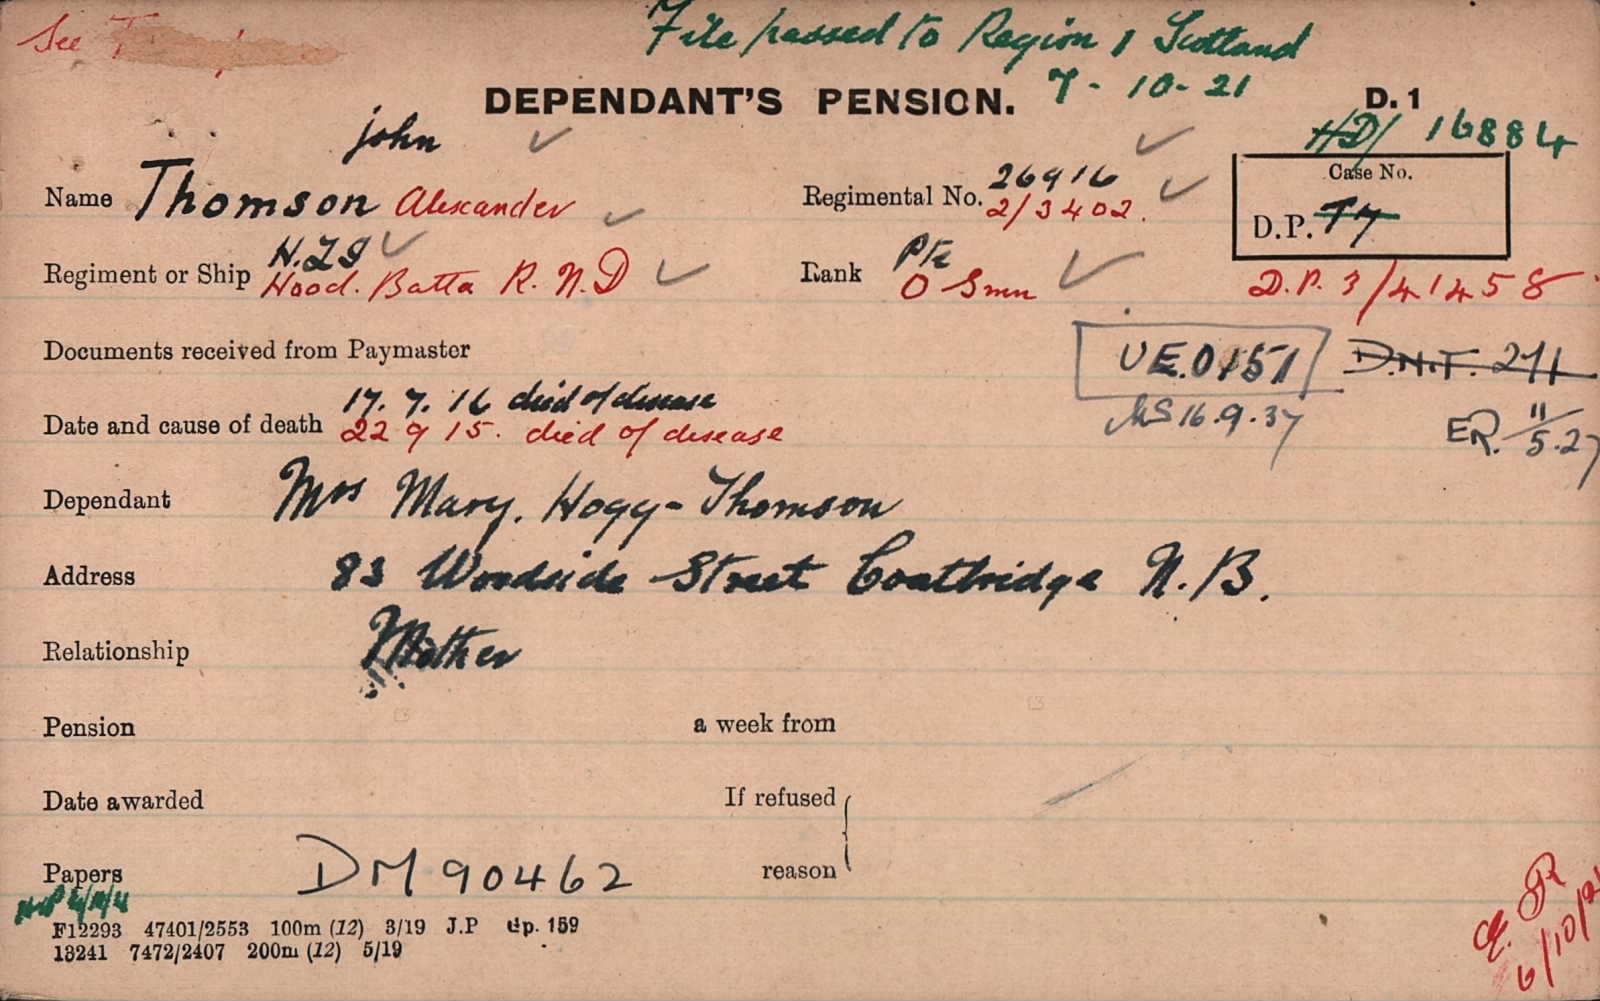 See
File passed to Region 1 Scotland
7-10-21
DEPENDANT'S PENSION.
D. 1
HD/ 16884
John
Name Thomson Alexander
Regimental No. 26916
2/3402.
Case No.
D.P. T7
D.P. 3/41458
Regiment or Ship H.L.I
Hood. Batta R.N.D
Rank Pte
O Smn
Documents received from Paymaster
UE.0151
D.N.T. 271
MS 16.9.37
ER. 11/5.27
Date and cause of death 17.7.16 died of disease
22 9 15. died of disease
Dependant Mrs Mary. Hogg-Thomson
Address 83 Woodside Street Coatbridge N.B.
Relationship Mother
Pension a week from
Date awarded If refused
Papers DM 90462 reason
F12293 47401/2553 100m (12) 3/19 J.P Gp. 159
13241 7472/2407 200m (12) 5/19
6/10/21